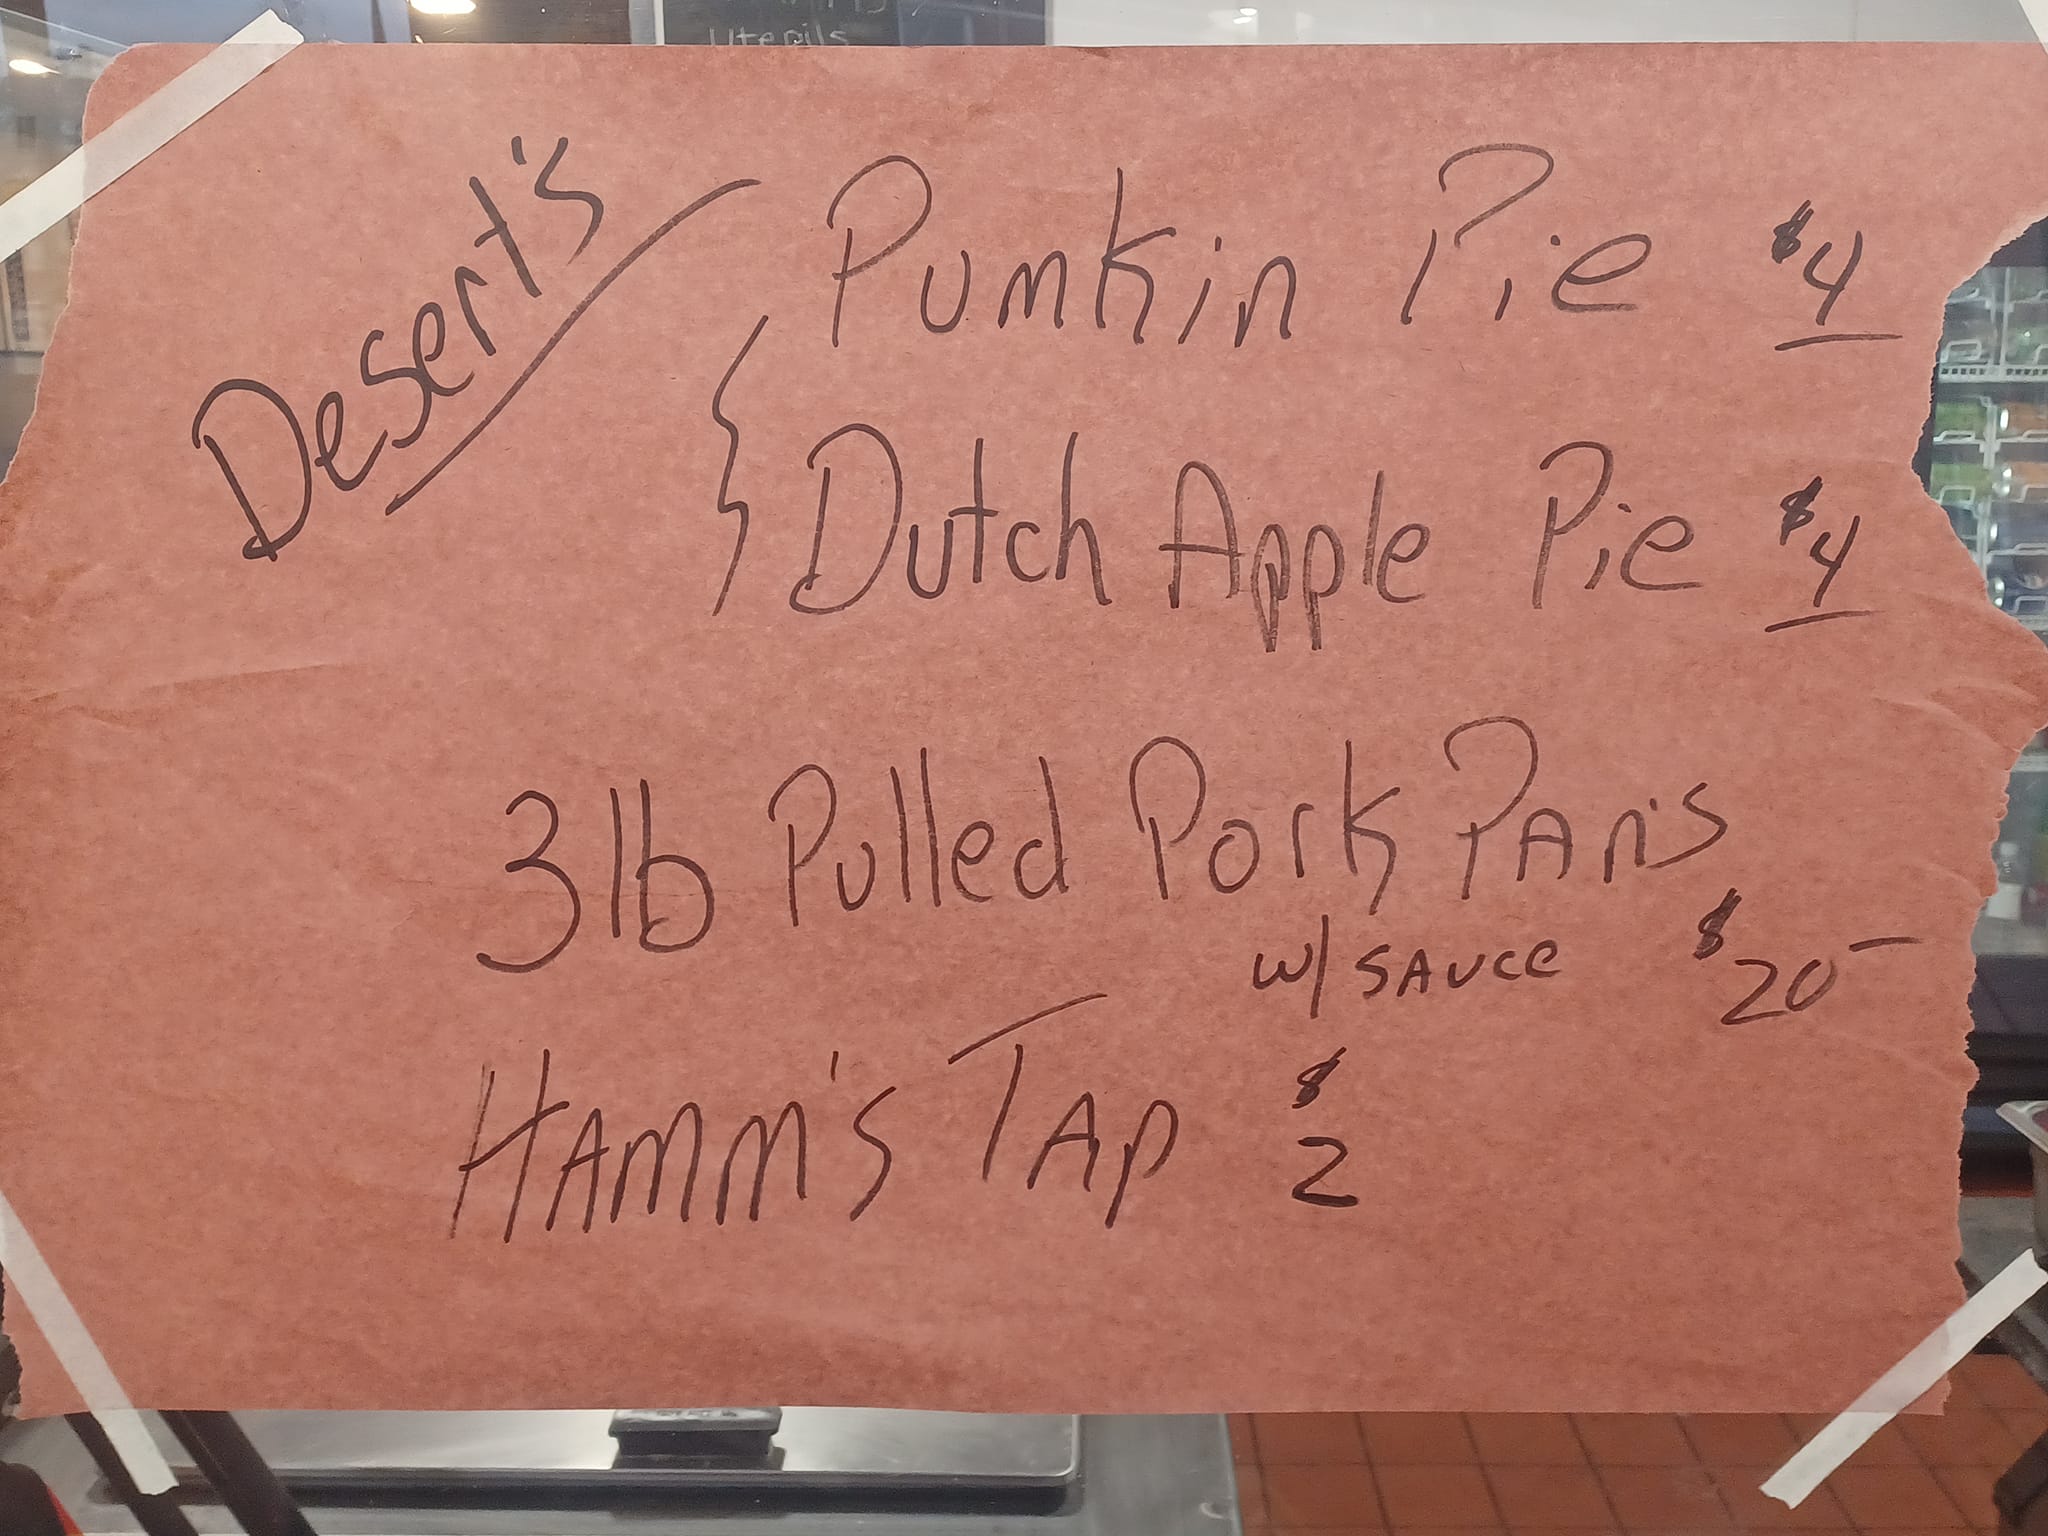 Utenils
Desert's
Pumkin Pie $4
Dutch Apple Pie $4
3lb Pulled Pork Pan's
w/ sauce $20-
Hamm's Tap $2